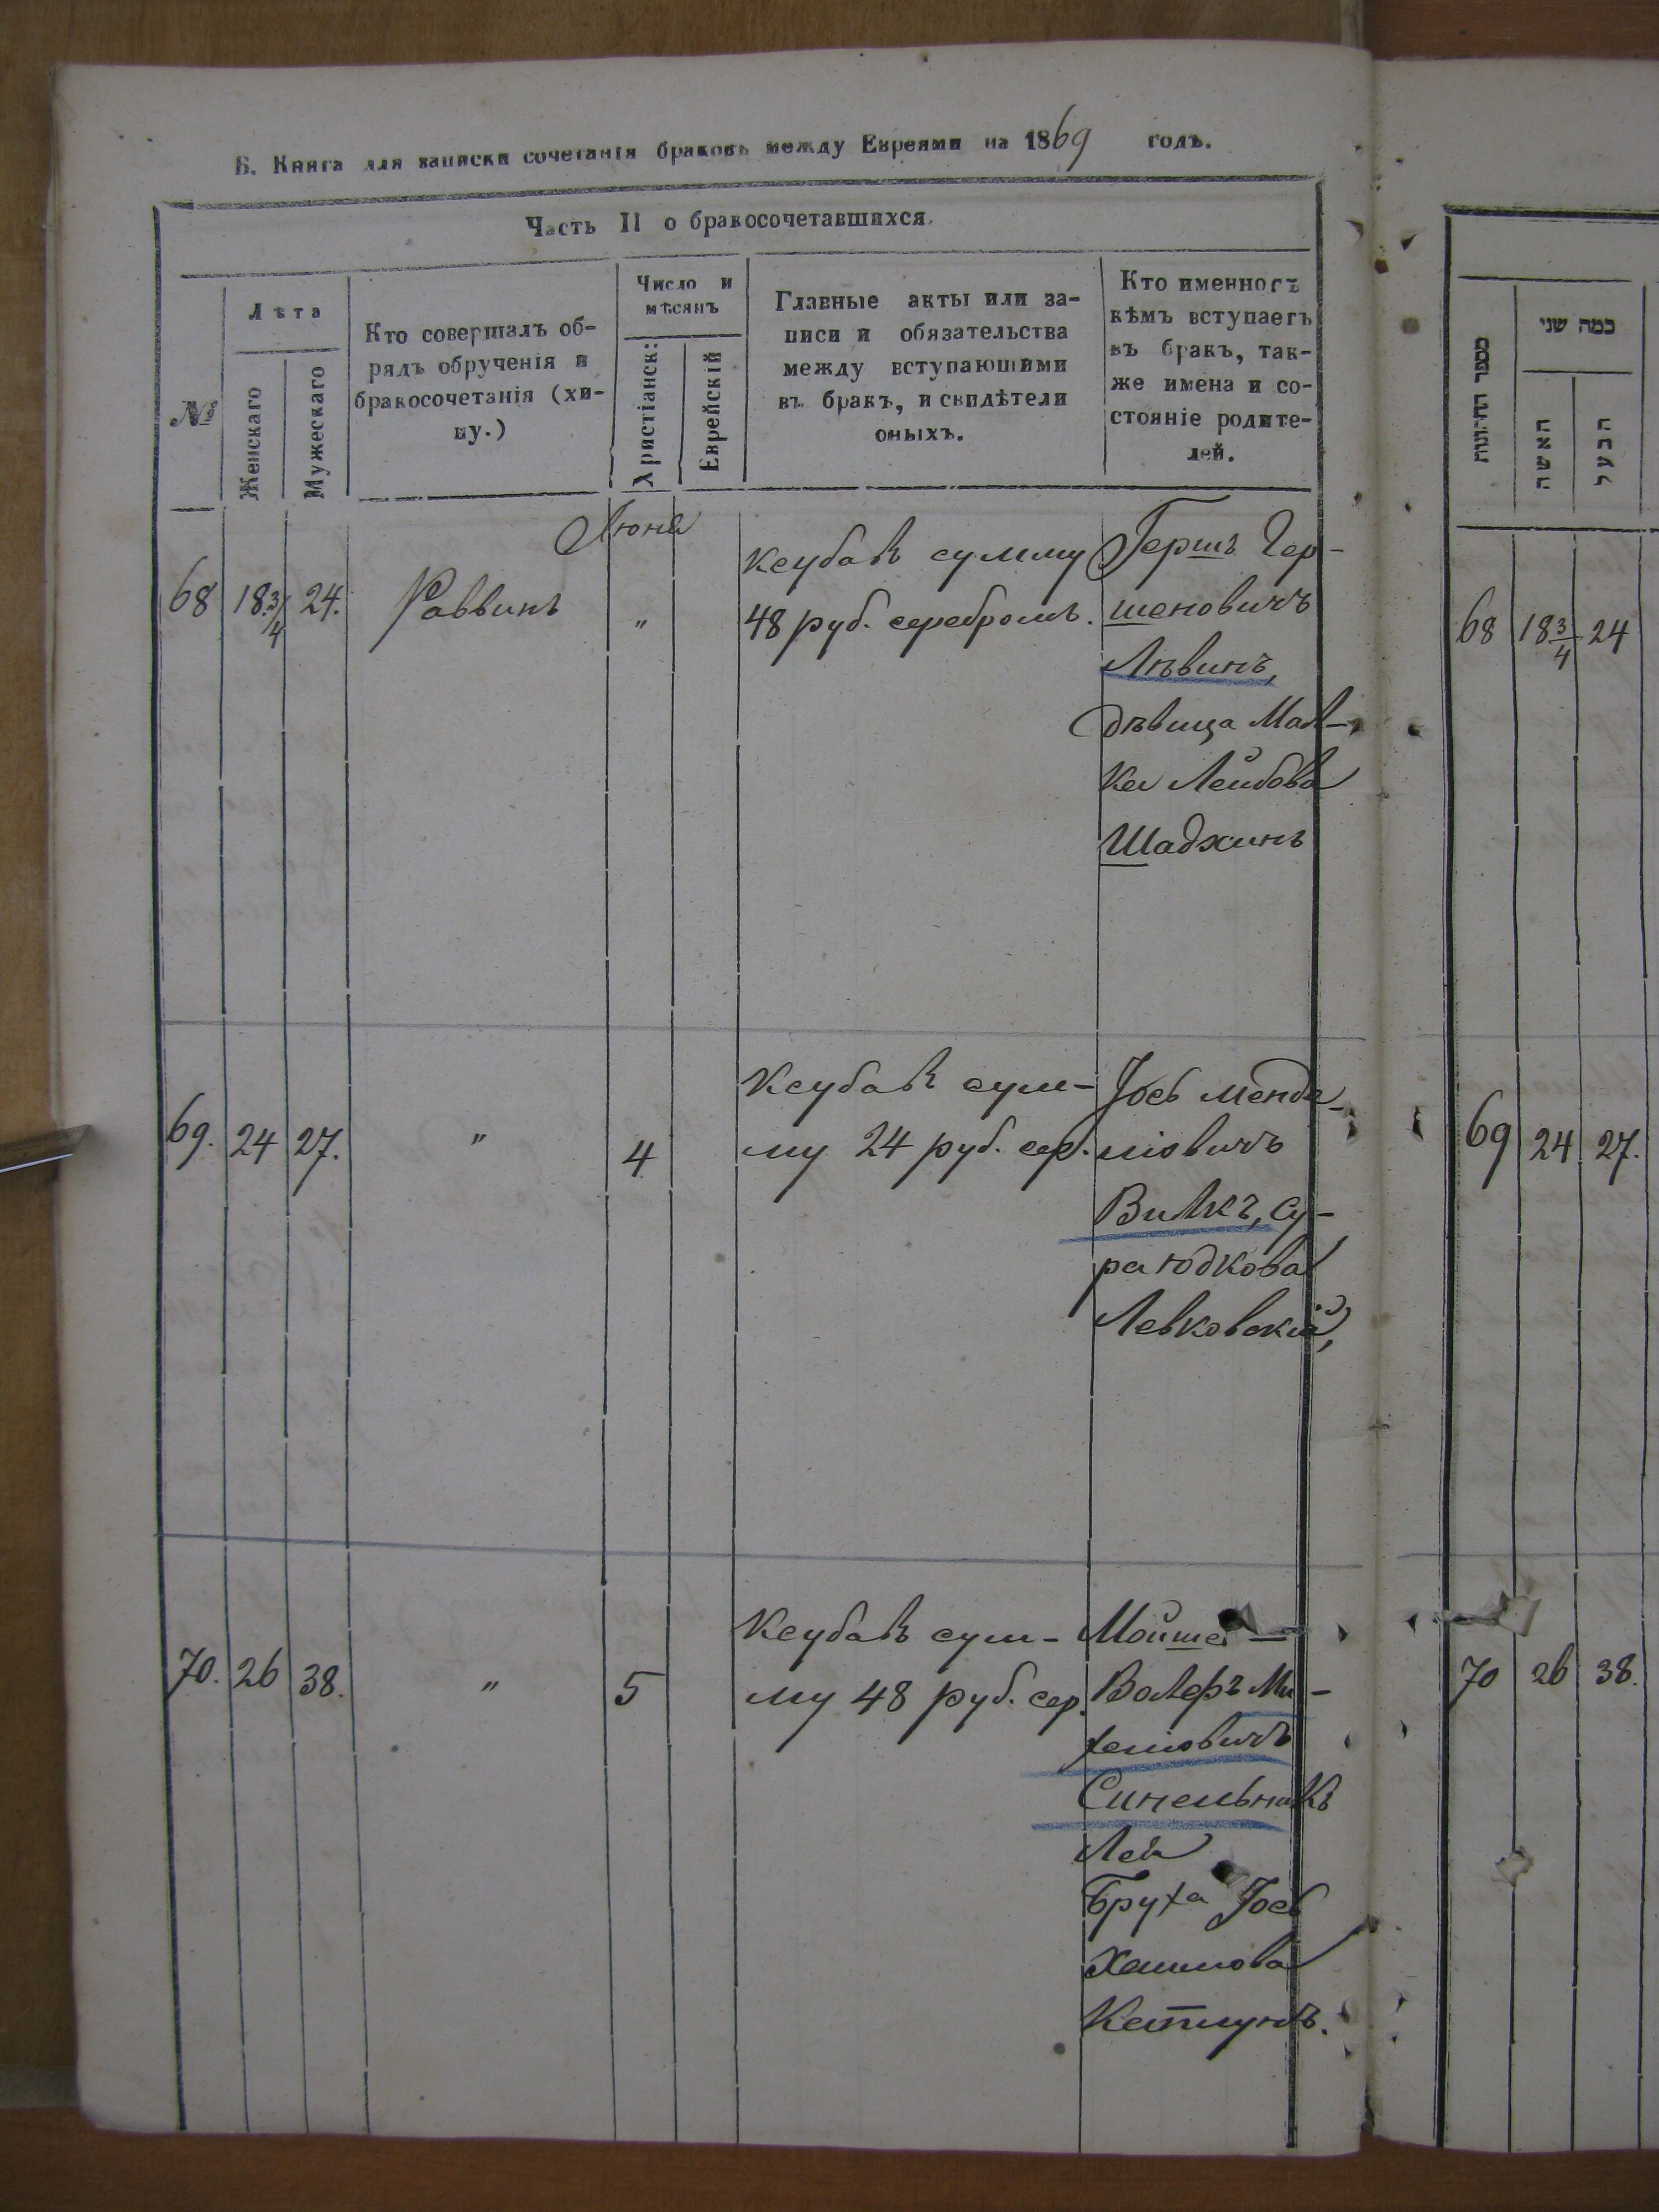 Б. Книга для записки сочетанія браковъ между Евреями на 1869 годъ.
Часть II о бракосочетавшихся.
№
Лѣта
Женскаго
Мужескаго
Кто совершалъ об-
рядъ обрученія и
бракосочетанія (хи-
пу.)
Число и
мѣсяцъ
Христіанск:
Еврейскій
Главные акты или за-
писи и обязательства
между вступающими
въ бракъ, и свидѣтели
оныхъ.
Кто именно съ
кѣмъ вступаетъ
въ бракъ, так-
же имена и со-
стояніе родите-
лей.
Іюня
68 18 3/4 24. Раввинъ „
Ксубавъ сумму
48 руб. серебромъ.
Гершъ Гер-
шеновичъ
Лѣвинъ,
дѣвица Мал-
ка Лейбова
Шадхинъ
69. 24 27. „ 4
Ксубавъ сум-
му 24 руб. сер.
Іосъ Менде-
ліовичъ
Вилкъ, Су-
ра Юдкова
Левковскій,
70. 26 38. „ 5
Ксубавъ сум-
му 48 руб. сер.
Мойше —
Волфъ Ми-
хеліовичъ
Синельникъ
Лея
Бруха Іос
Хаимова
Капмунъ.
מספר החתונות
כמה שני
האשה
הבעל
68 18 3/4 24
69 24 27.
70 26 38.